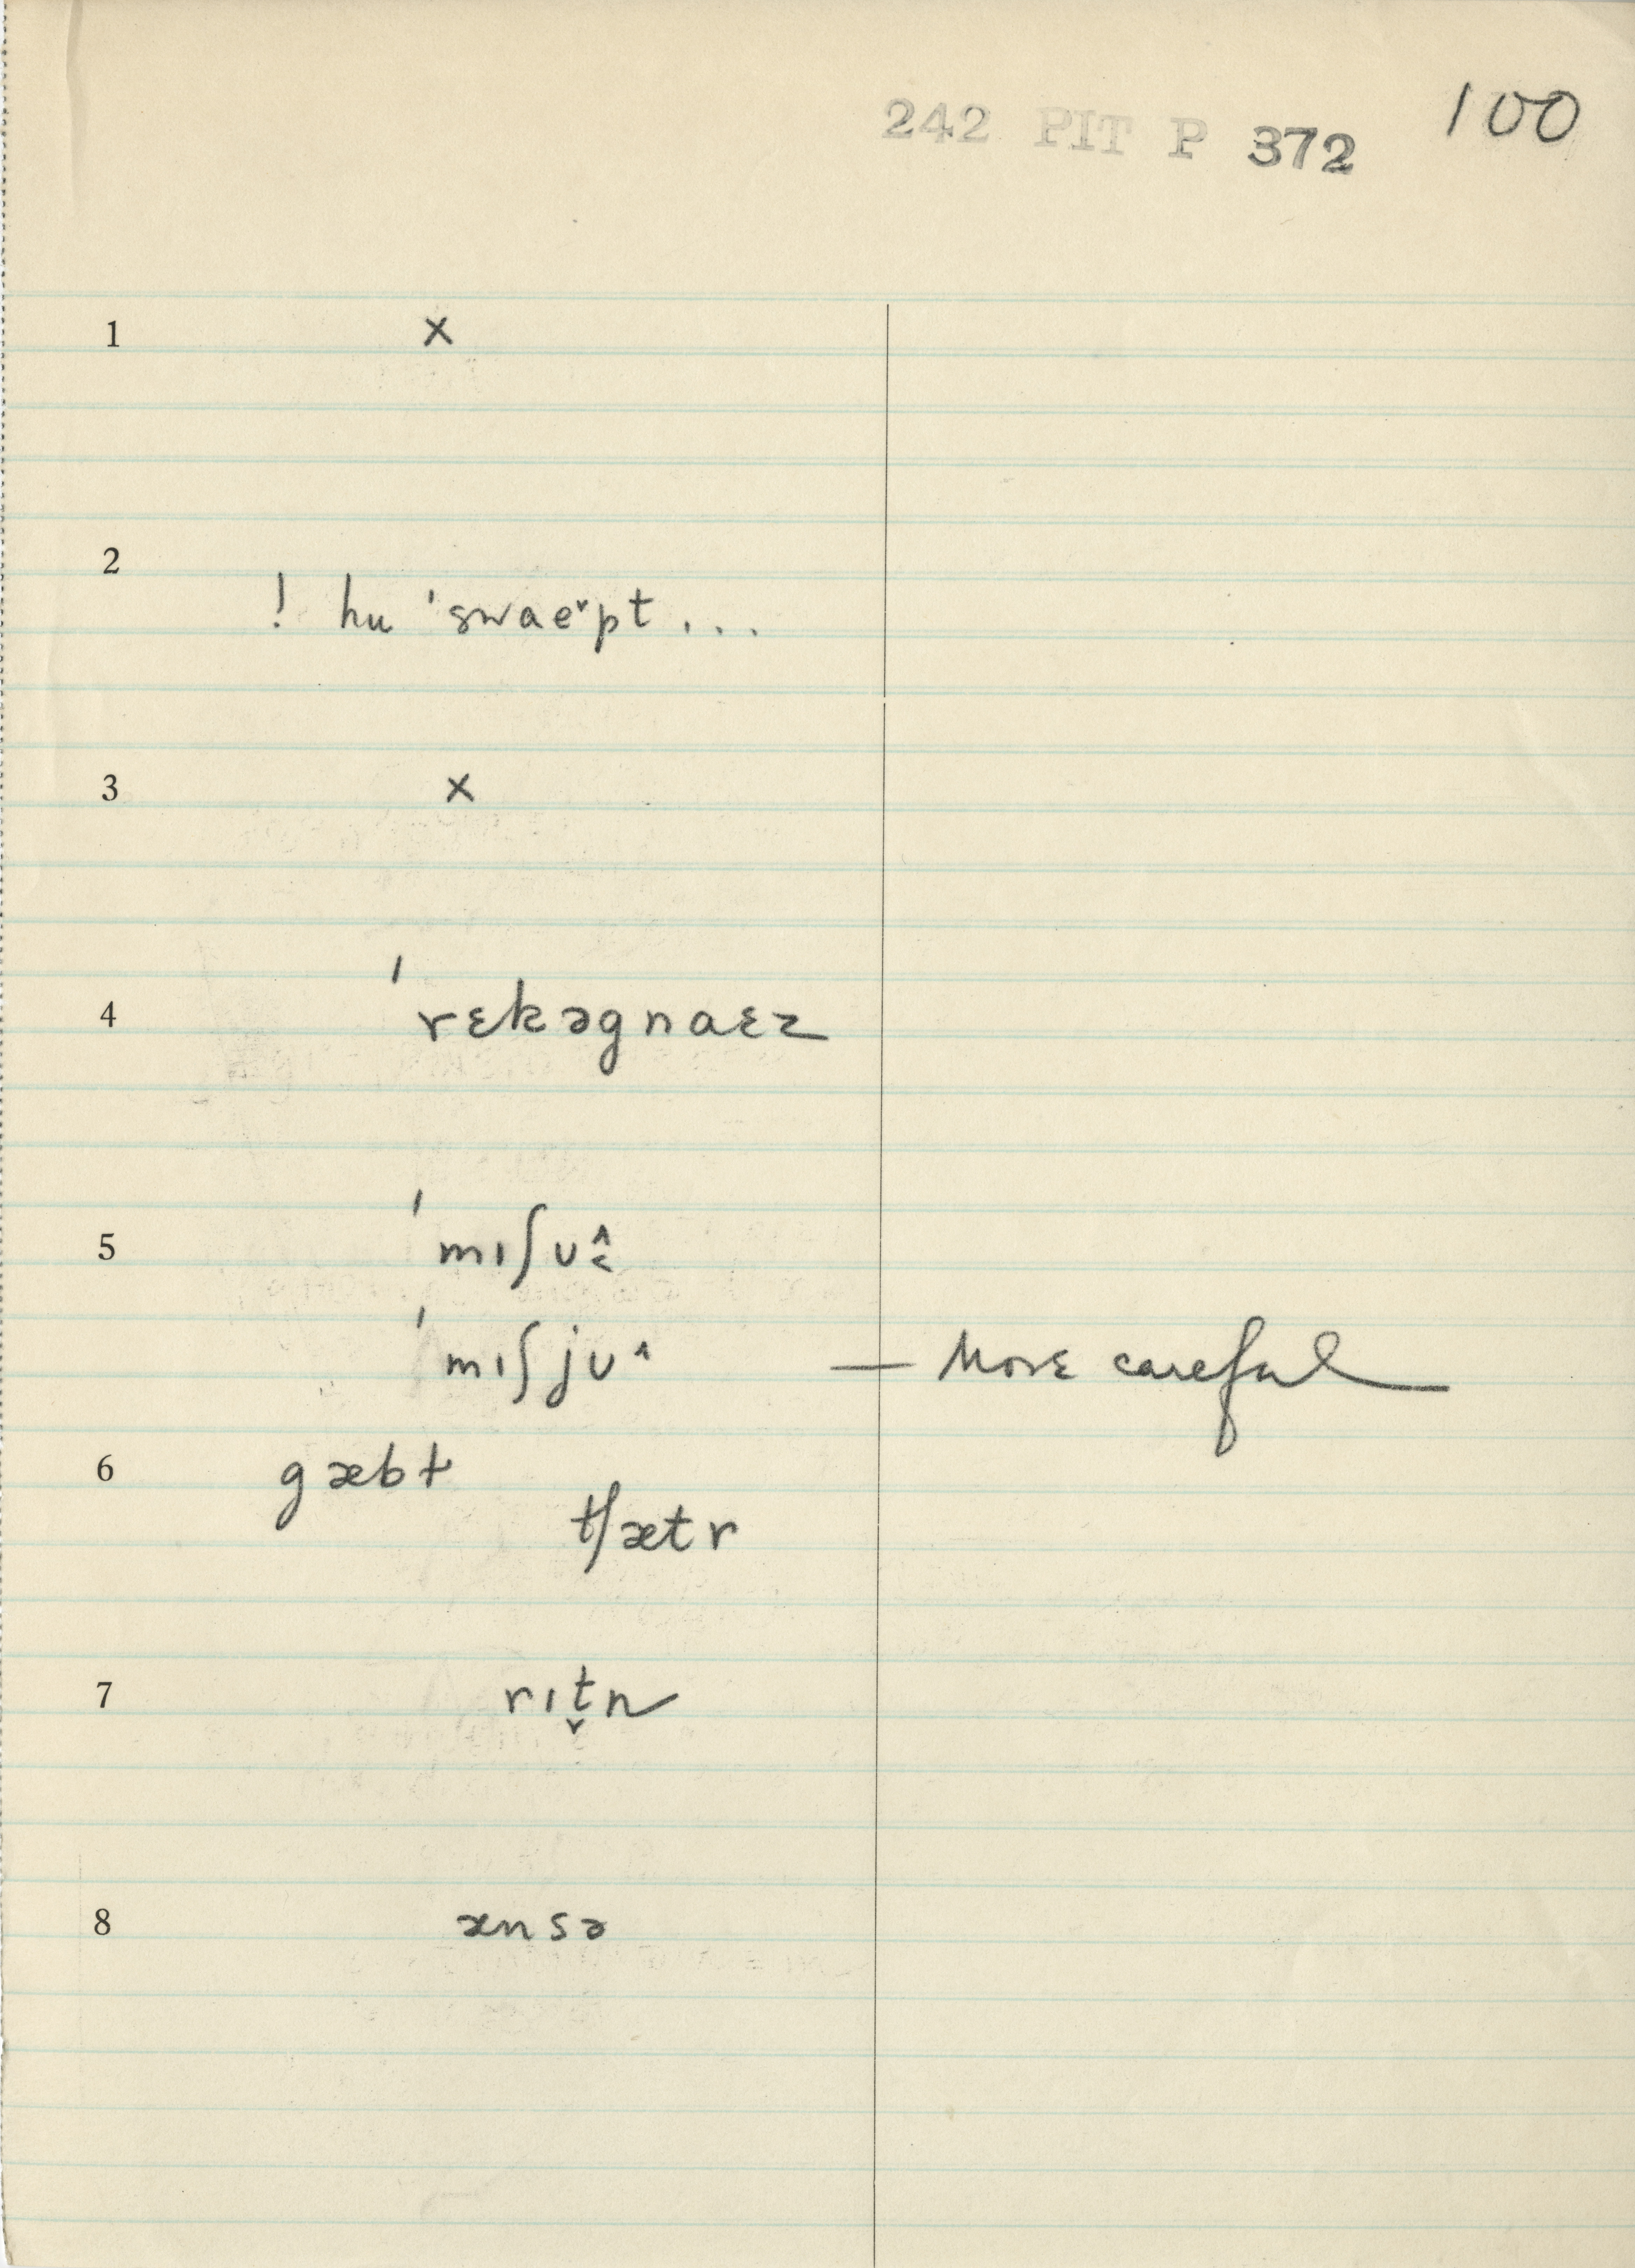 242 PIT P 372 100
1 x
2
! hu ˈswae˅pt ...
3 x
4 ˈrɛkəgnaɛz
5 ˈmɪʃʊ˄˂
ˈmɪʃjʊ˄ — More careful
6 gæbɫ
tʃætr
7 rɪt̬n
8 ænsə